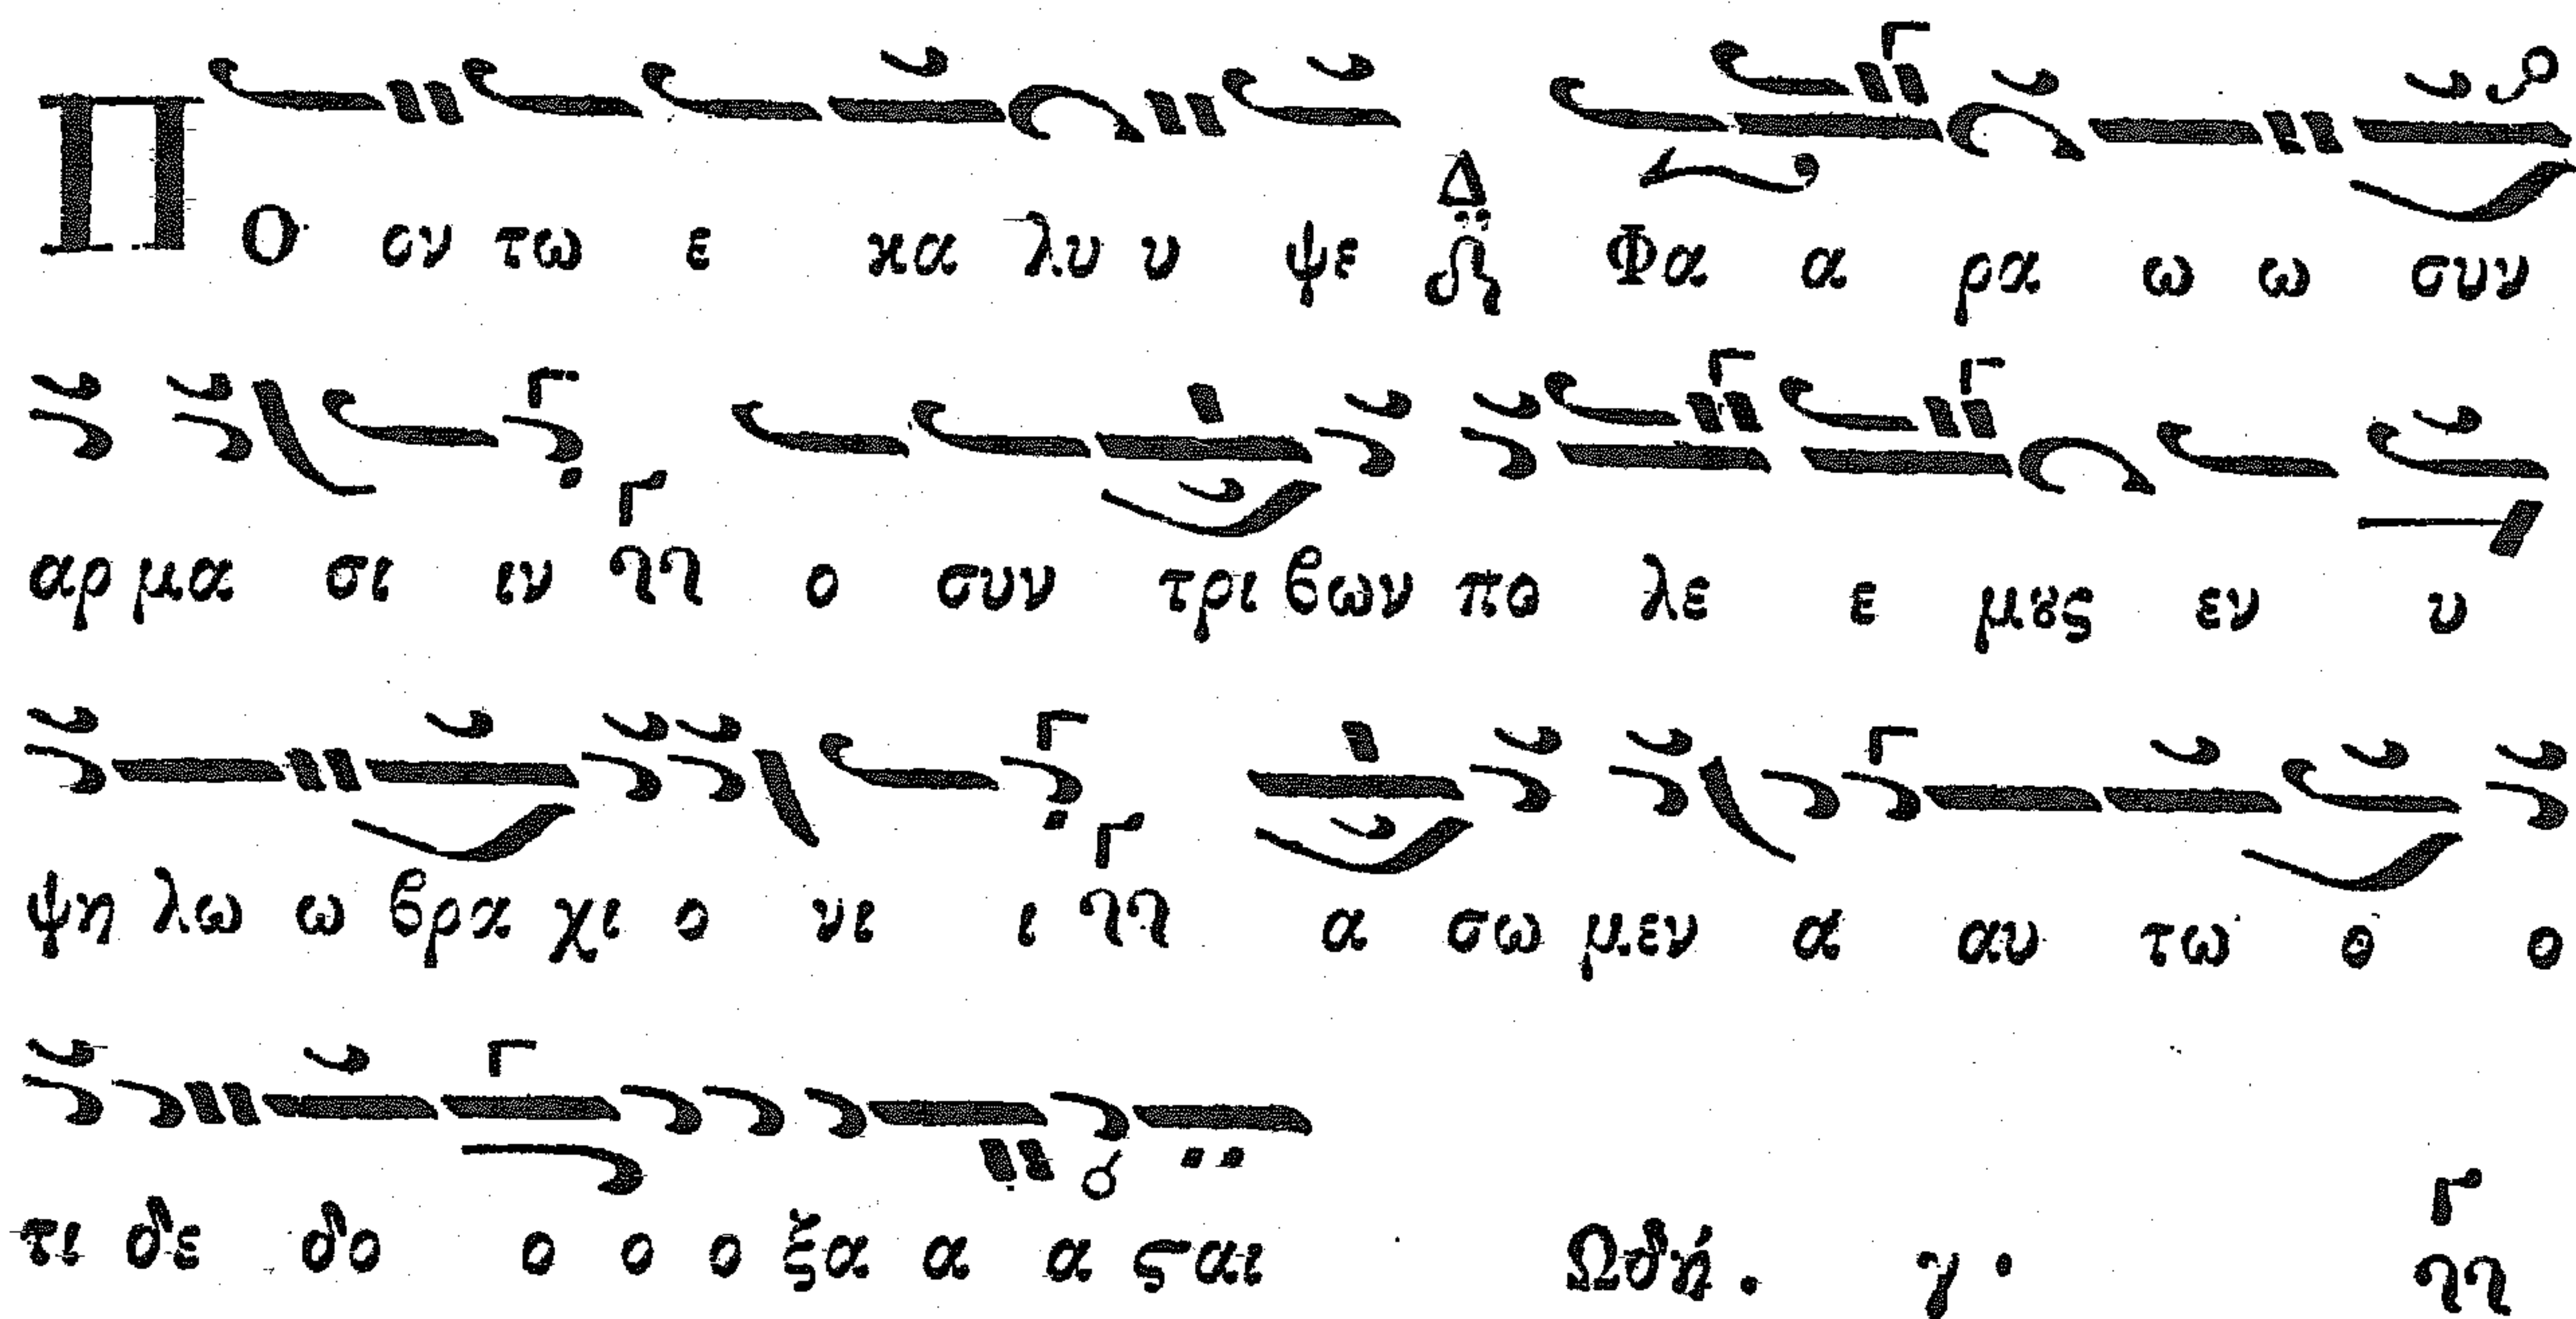 Πο ον τω ε κα λυ υ ψε Δ Φα α ρα ω ω συν
αρ μα σι ιν Γ ο συν τρι βων πο λε ε μȣς εν υ
ψη λω ω βρα χι ο νι ι Γ α σω μεν α αυ τω ο ο
τι δε δο ο ο ο ξα α α ϛαι Ωδή. γ. Γ